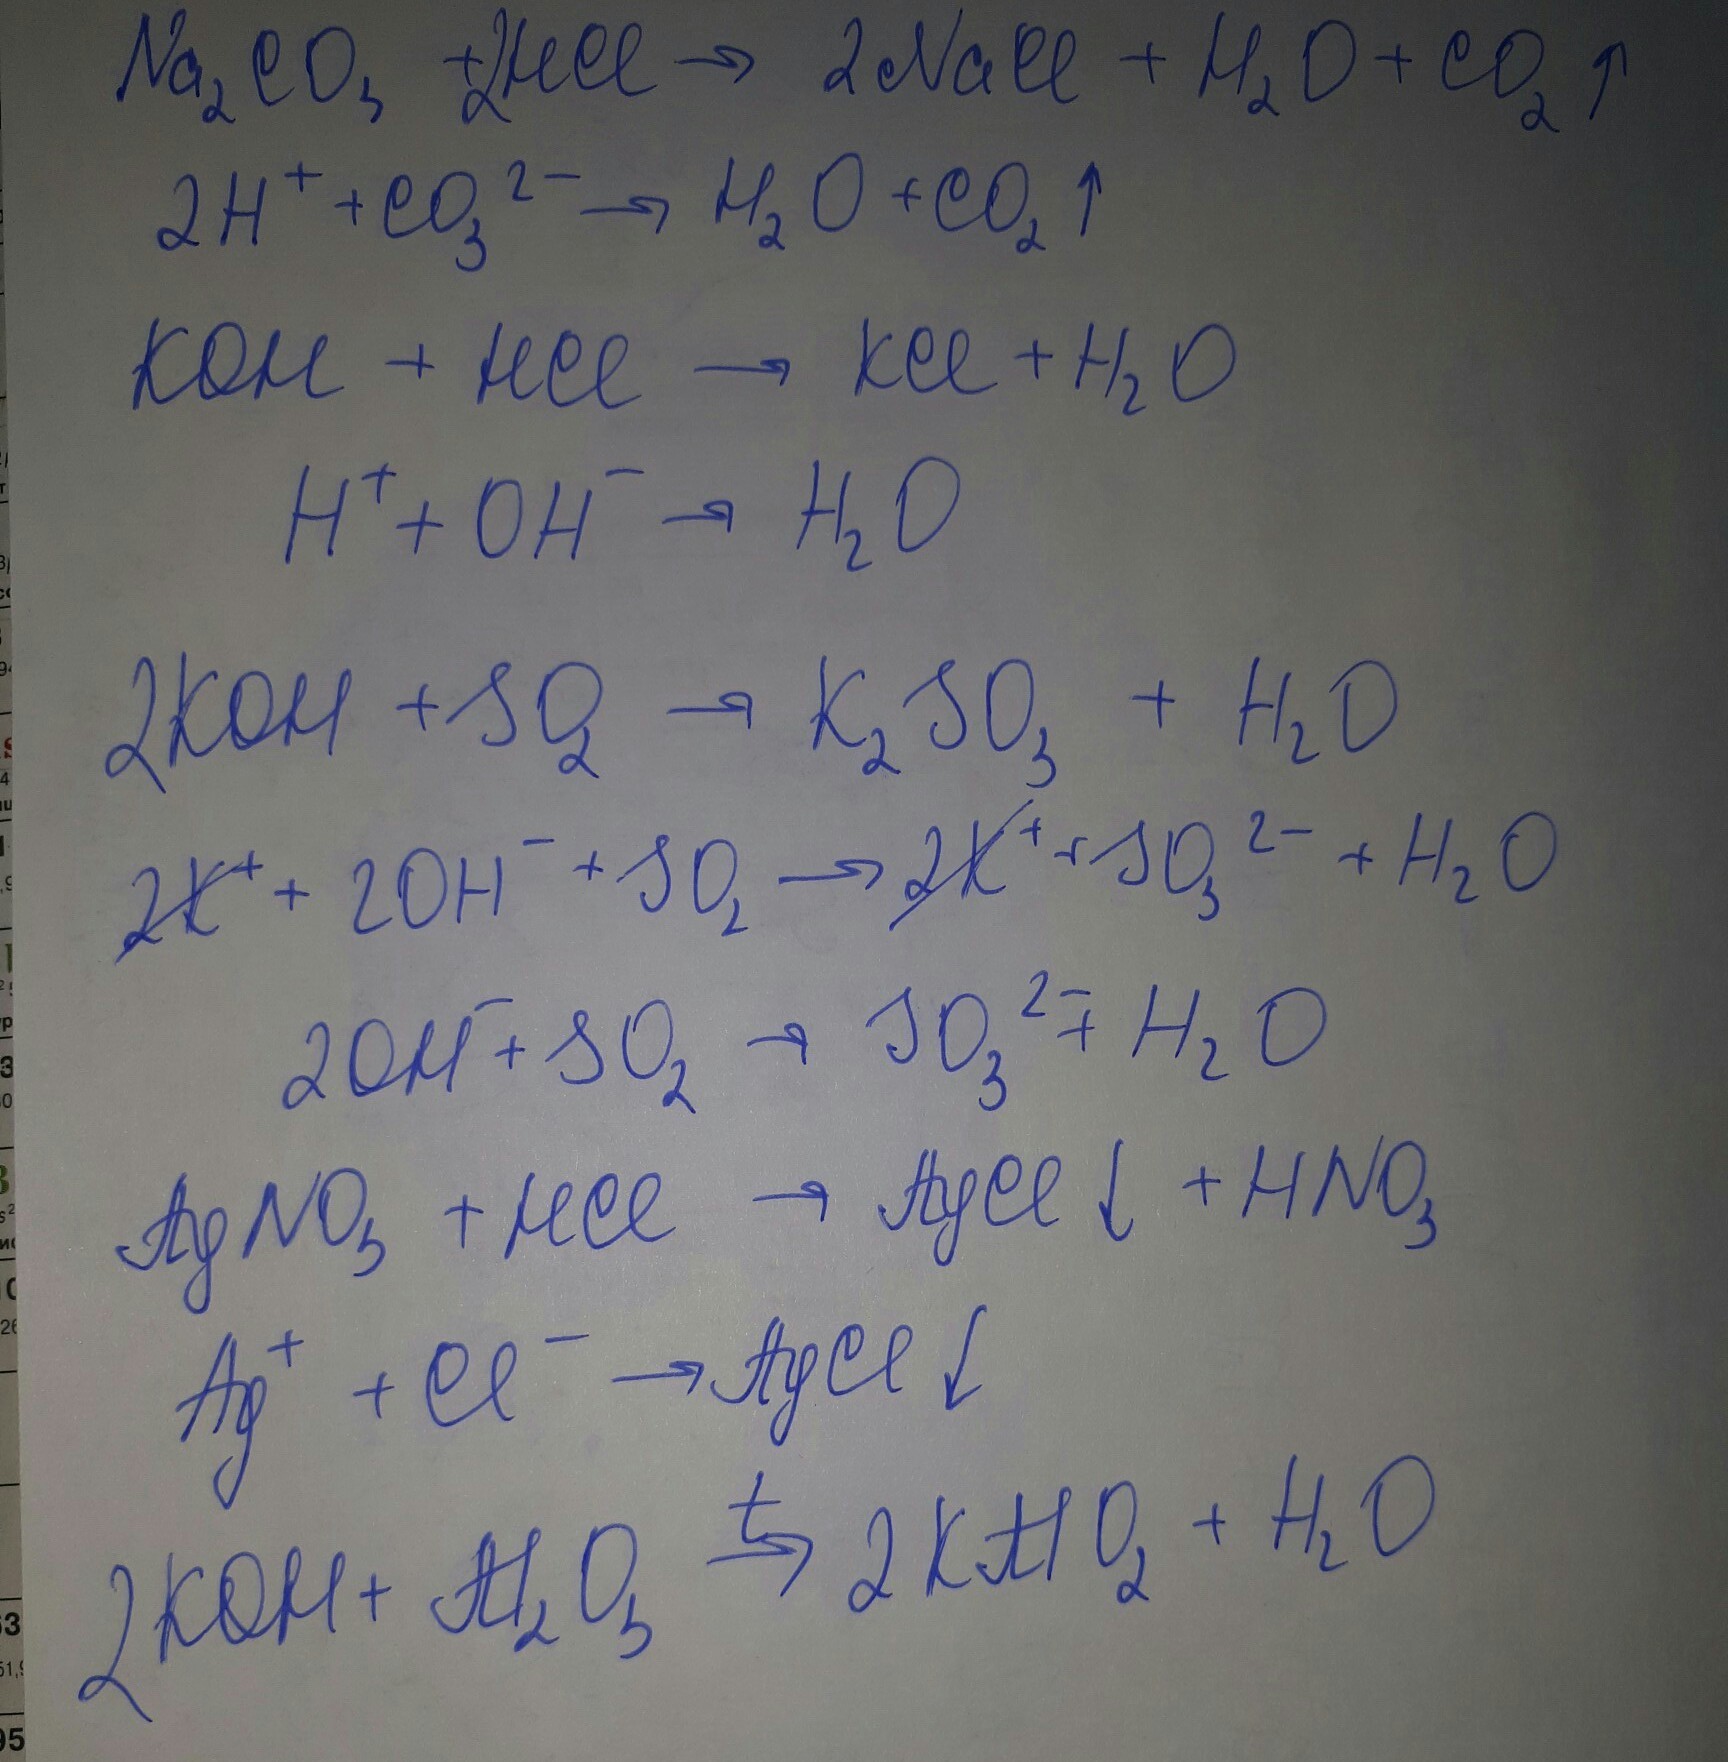 Na₂CO₃ + 2HCl → 2NaCl + H₂O + CO₂↑
2H⁺ + CO₃²⁻ → H₂O + CO₂↑
KOH + HCl → KCl + H₂O
H⁺ + OH⁻ → H₂O
2KOH + SO₂ → K₂SO₃ + H₂O
2K⁺ + 2OH⁻ + SO₂ → 2K⁺ + SO₃²⁻ + H₂O
2OH⁻ + SO₂ → SO₃²⁻ + H₂O
AgNO₃ + HCl → AgCl↓ + HNO₃
Ag⁺ + Cl⁻ → AgCl↓
2KOH + Al₂O₃ →ᵗ 2KAlO₂ + H₂O